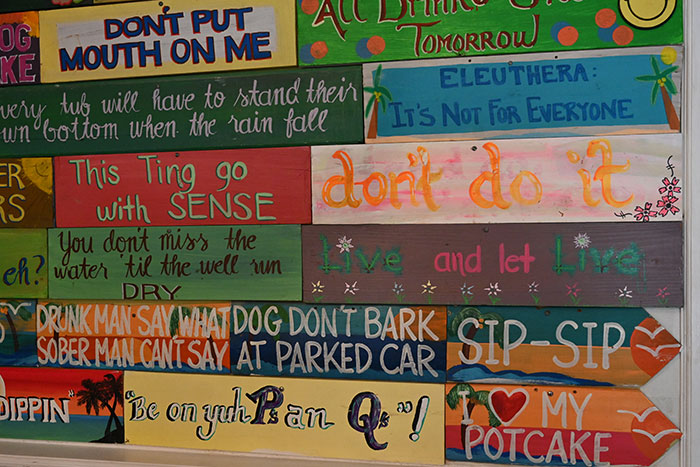 DON'T PUT
MOUTH ON ME
All Drinks
Tomorrow
OG
KE
very tub will have to stand their
own bottom when the rain fall
ELEUTHERA:
IT'S NOT FOR EVERYONE
ER
RS
This Ting go
with SENSE
don't do it
eh?
You don't miss the
water 'til the well run
DRY
Live and let Live
DRUNK MAN SAY WHAT
SOBER MAN CAN'T SAY
DOG DON'T BARK
AT PARKED CAR
SIP-SIP
DIPPIN"
"Be on yuh Ps an Qs"!
I ♥ MY
POTCAKE